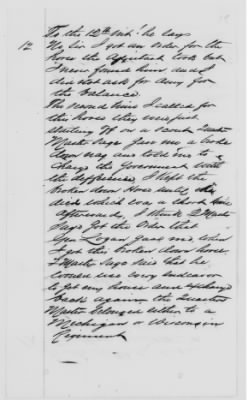 To the 12th Int. he says
12 No Sir I got an order for the
horse the Affiant took but
I never found him and I
did not ask for any for
the balance
The second time I called for
the horses they were just
starting off on a scout Quarter
Master Sago gave me a broke
down nag and told me to
charge the Government with
the difference I kept the
broken down Horse until he
died which was a short time
afterwards, I think Q Master
Sago Got the Order that
Gen Logan gave me when
I got this broken down horse
Q Master Sago said that he
would use every endeavor
to get my horse and exchange
back again the Quarter
Master belonged either to a
Michigan or Wisconsin
Regiment